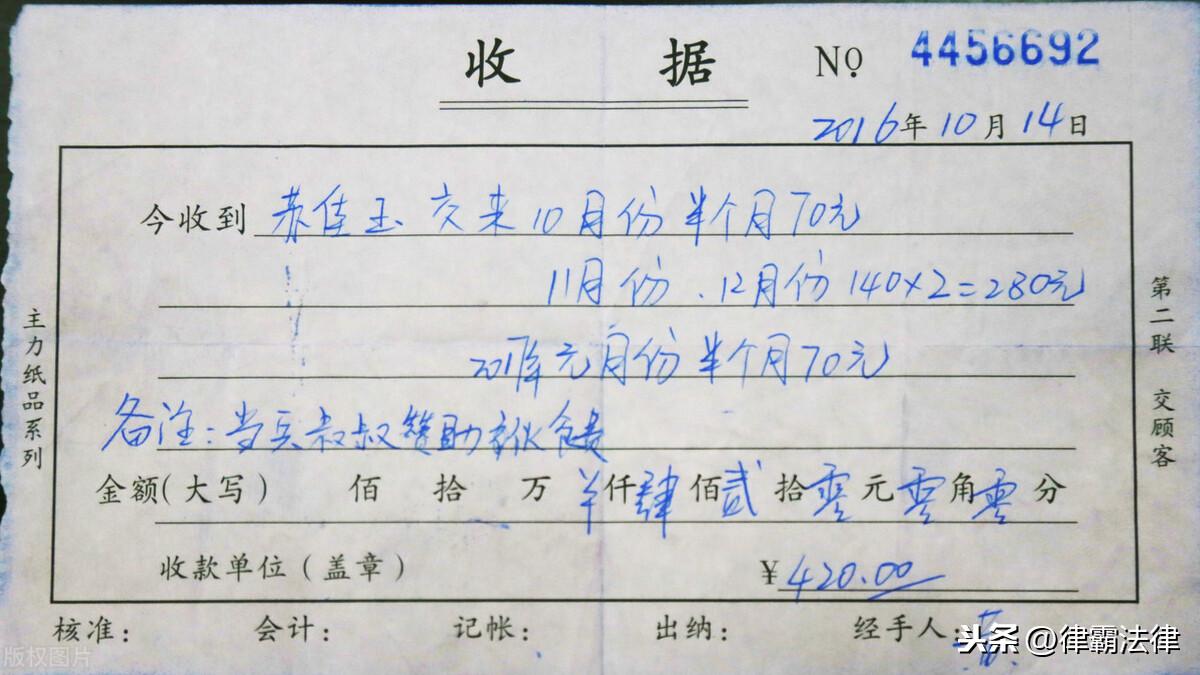 收 据 № 4456692
2016年10月14日
今收到 苏佳玉 交来10月份半个月70元
11月份、12月份 140×2=280元
2017年元月份半个月70元
备注:当兵叔叔赞助 伙食费
金额(大写) 佰 拾 万 仟肆佰贰拾零元零角零分
收款单位(盖章) ¥420.00
核准: 会计: 记帐: 出纳: 经手人:
主力纸品系列
第二联 交顾客
版权图片
头条@律霸法律